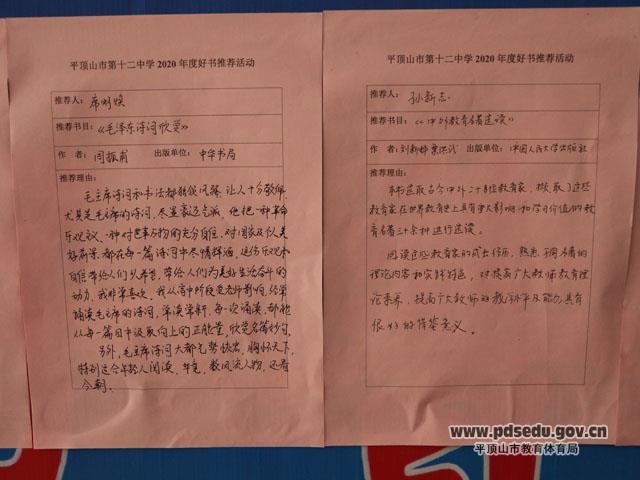 平顶山市第十二中学2020年度好书推荐活动
推荐人：席明焕
推荐书目：《毛泽东诗词欣赏》
作 者：周振甫 出版单位：中华书局
推荐理由：
毛主席诗词和书法都独俱风骚，让人十分敬佩，
尤其是毛主席的诗词，尽显豪迈气派，他把一种革命
乐观主义、一种对世事万物的充分自信、对国家及后人美
好前景都在每一篇诗词中尽情释涵，这份乐观和
自信带给人们以希望，带给人们为美好生活奋斗的
动力，我非常喜欢。我从高中阶段受老师影响，经常
诵读毛主席的诗词，常读常新，每一次诵读，都能
从每一篇目中汲取向上的正能量，欣赏名篇妙句。
另外，毛主席诗词大都气势恢宏，胸怀天下，
特别适合年轻人阅读，毕竟，数风流人物，还看
今朝。
平顶山市第十二中学2020年度好书推荐活动
推荐人：孙新志
推荐书目：《中外教育名著选读》
作 者：刘新科 栗洪武 出版单位：中国人民大学出版社
推荐理由：
本书选取古今中外二十多位教育家，撷取了这些
教育家在世界教育史上具有重大影响和学习价值的教
育名著三十余种进行选读。
阅读这些教育家的成长经历，熟悉不同名著的
理论内容和实践特色，对提高广大教师教育理
论素养、提高广大教师的教学水平及能力具有
很好的借鉴意义。
www.pdsedu.gov.cn
平顶山市教育体育局